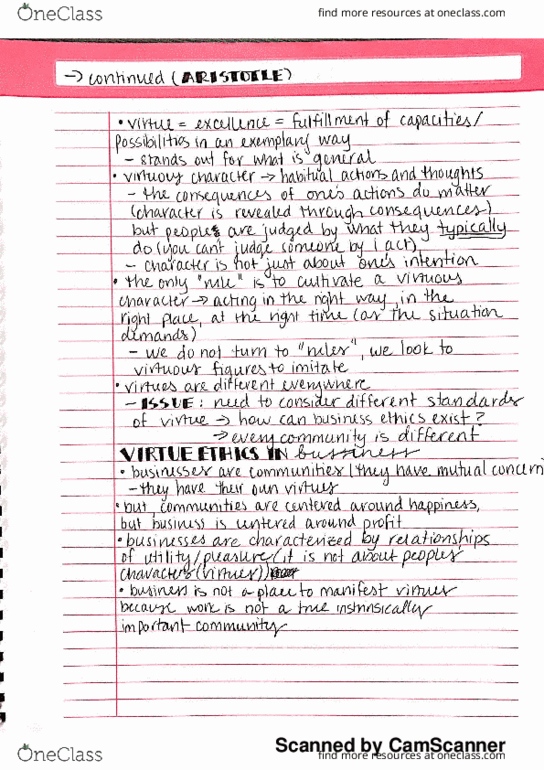 OneClass
find more resources at oneclass.com
→ continued (ARISTOTLE)
• virtue = excellence = fulfillment of capacities/
possibilities in an exemplary way
- stands out for what is general
• virtuous character → habitual actions and thoughts
- the consequences of one's actions do matter
(character is revealed through consequences)
but peoples are judged by what they typically
do (you can't judge someone by 1 act)
- character is not just about one's intention
• the only "rule" is to cultivate a virtuous
character → acting in the right way, in the
right place, at the right time (as the situation
demands)
- we do not turn to "rules", we look to
virtuous figures to imitate
• virtues are different everywhere
- ISSUE: need to consider different standards
of virtue → how can business ethics exist?
→ every community is different
VIRTUE ETHICS IN bussiness
• businesses are communities (they have mutual concern
- they have their own virtues
• but, communities are centered around happiness,
but business is centered around profit
• businesses are characterized by relationships
of utility/pleasure (it is not about peoples
characters (virtues))
• business is not a place to manifest virtues
because work is not a true instrinsically
important community
Scanned by CamScanner
OneClass
find more resources at oneclass.com